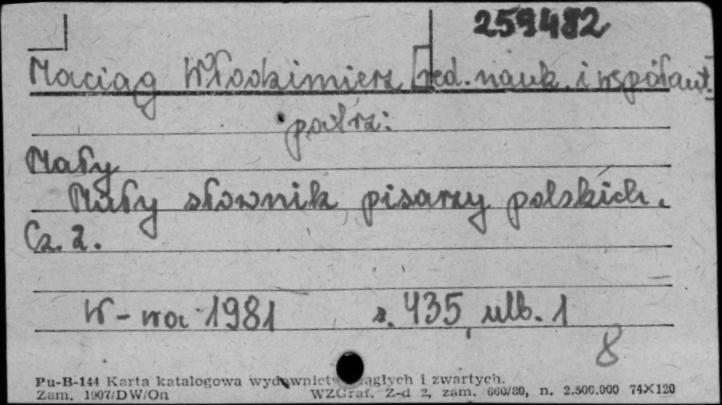 259482
Maciąg Włodzimierz [red. nauk. i współaut.]
patrz:
Mały
Mały słownik pisarzy polskich.
Cz. 2.
W-wa 1981 s. 435, ulb. 1
8
Pu-B-144 Karta katalogowa wydawnictw ciągłych i zwartych.
Zam. 1907/DW/On WZGraf. Z-d 2, zam. 660/80, n. 2.500.000 74×120